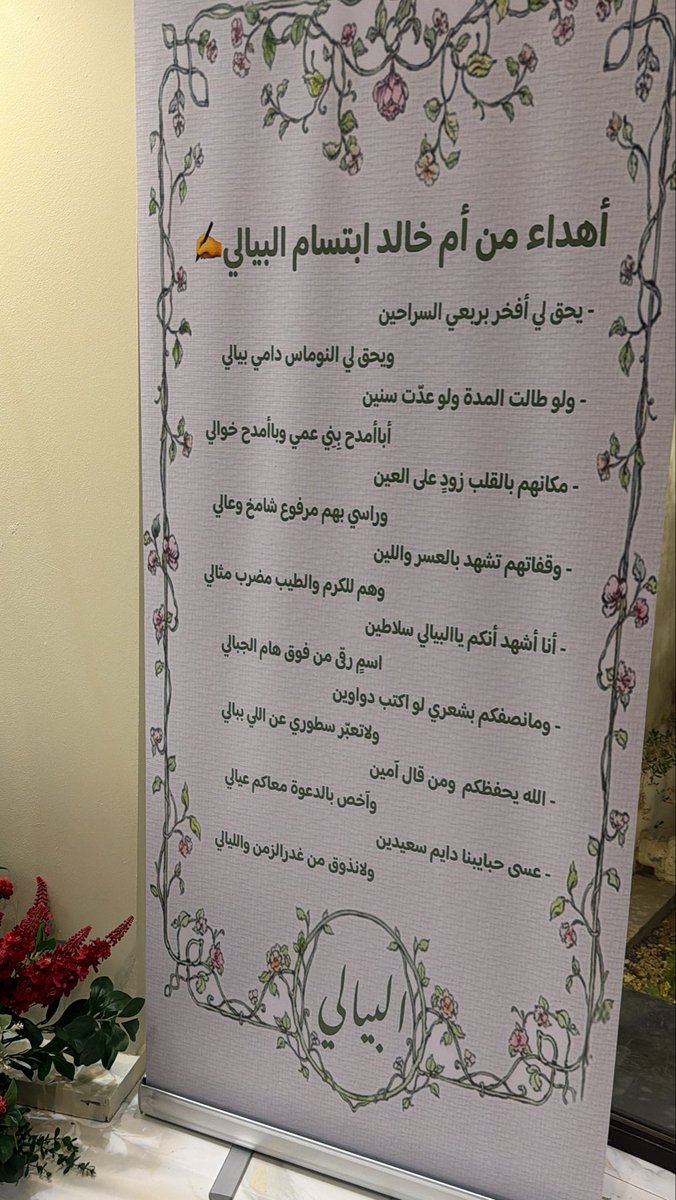 أهداء من أم خالد ابتسام البيالي✍️
- يحق لي أفخر بربعي السراحين
ويحق لي النوماس دامي بيالي
- ولو طالت المدة ولو عدّت سنين
أباأمدح بِني عمي وباأمدح خوالي
- مكانهم بالقلب زودٍ على العين
وراسي بهم مرفوع شامخ وعالي
- وقفاتهم تشهد بالعسر واللين
وهم للكرم والطيب مضرب مثالي
- أنا أشهد أنكم ياالبيالي سلاطين
اسمٍ رقى من فوق هام الجبالي
- ومانصفكم بشعري لو اكتب دواوين
ولاتعبّر سطوري عن اللي ببالي
- الله يحفظكم ومن قال آمين
وآخص بالدعوة معاكم عيالي
- عسى حبايبنا دايم سعيدين
ولانذوق من غدرالزمن والليالي
البيالي